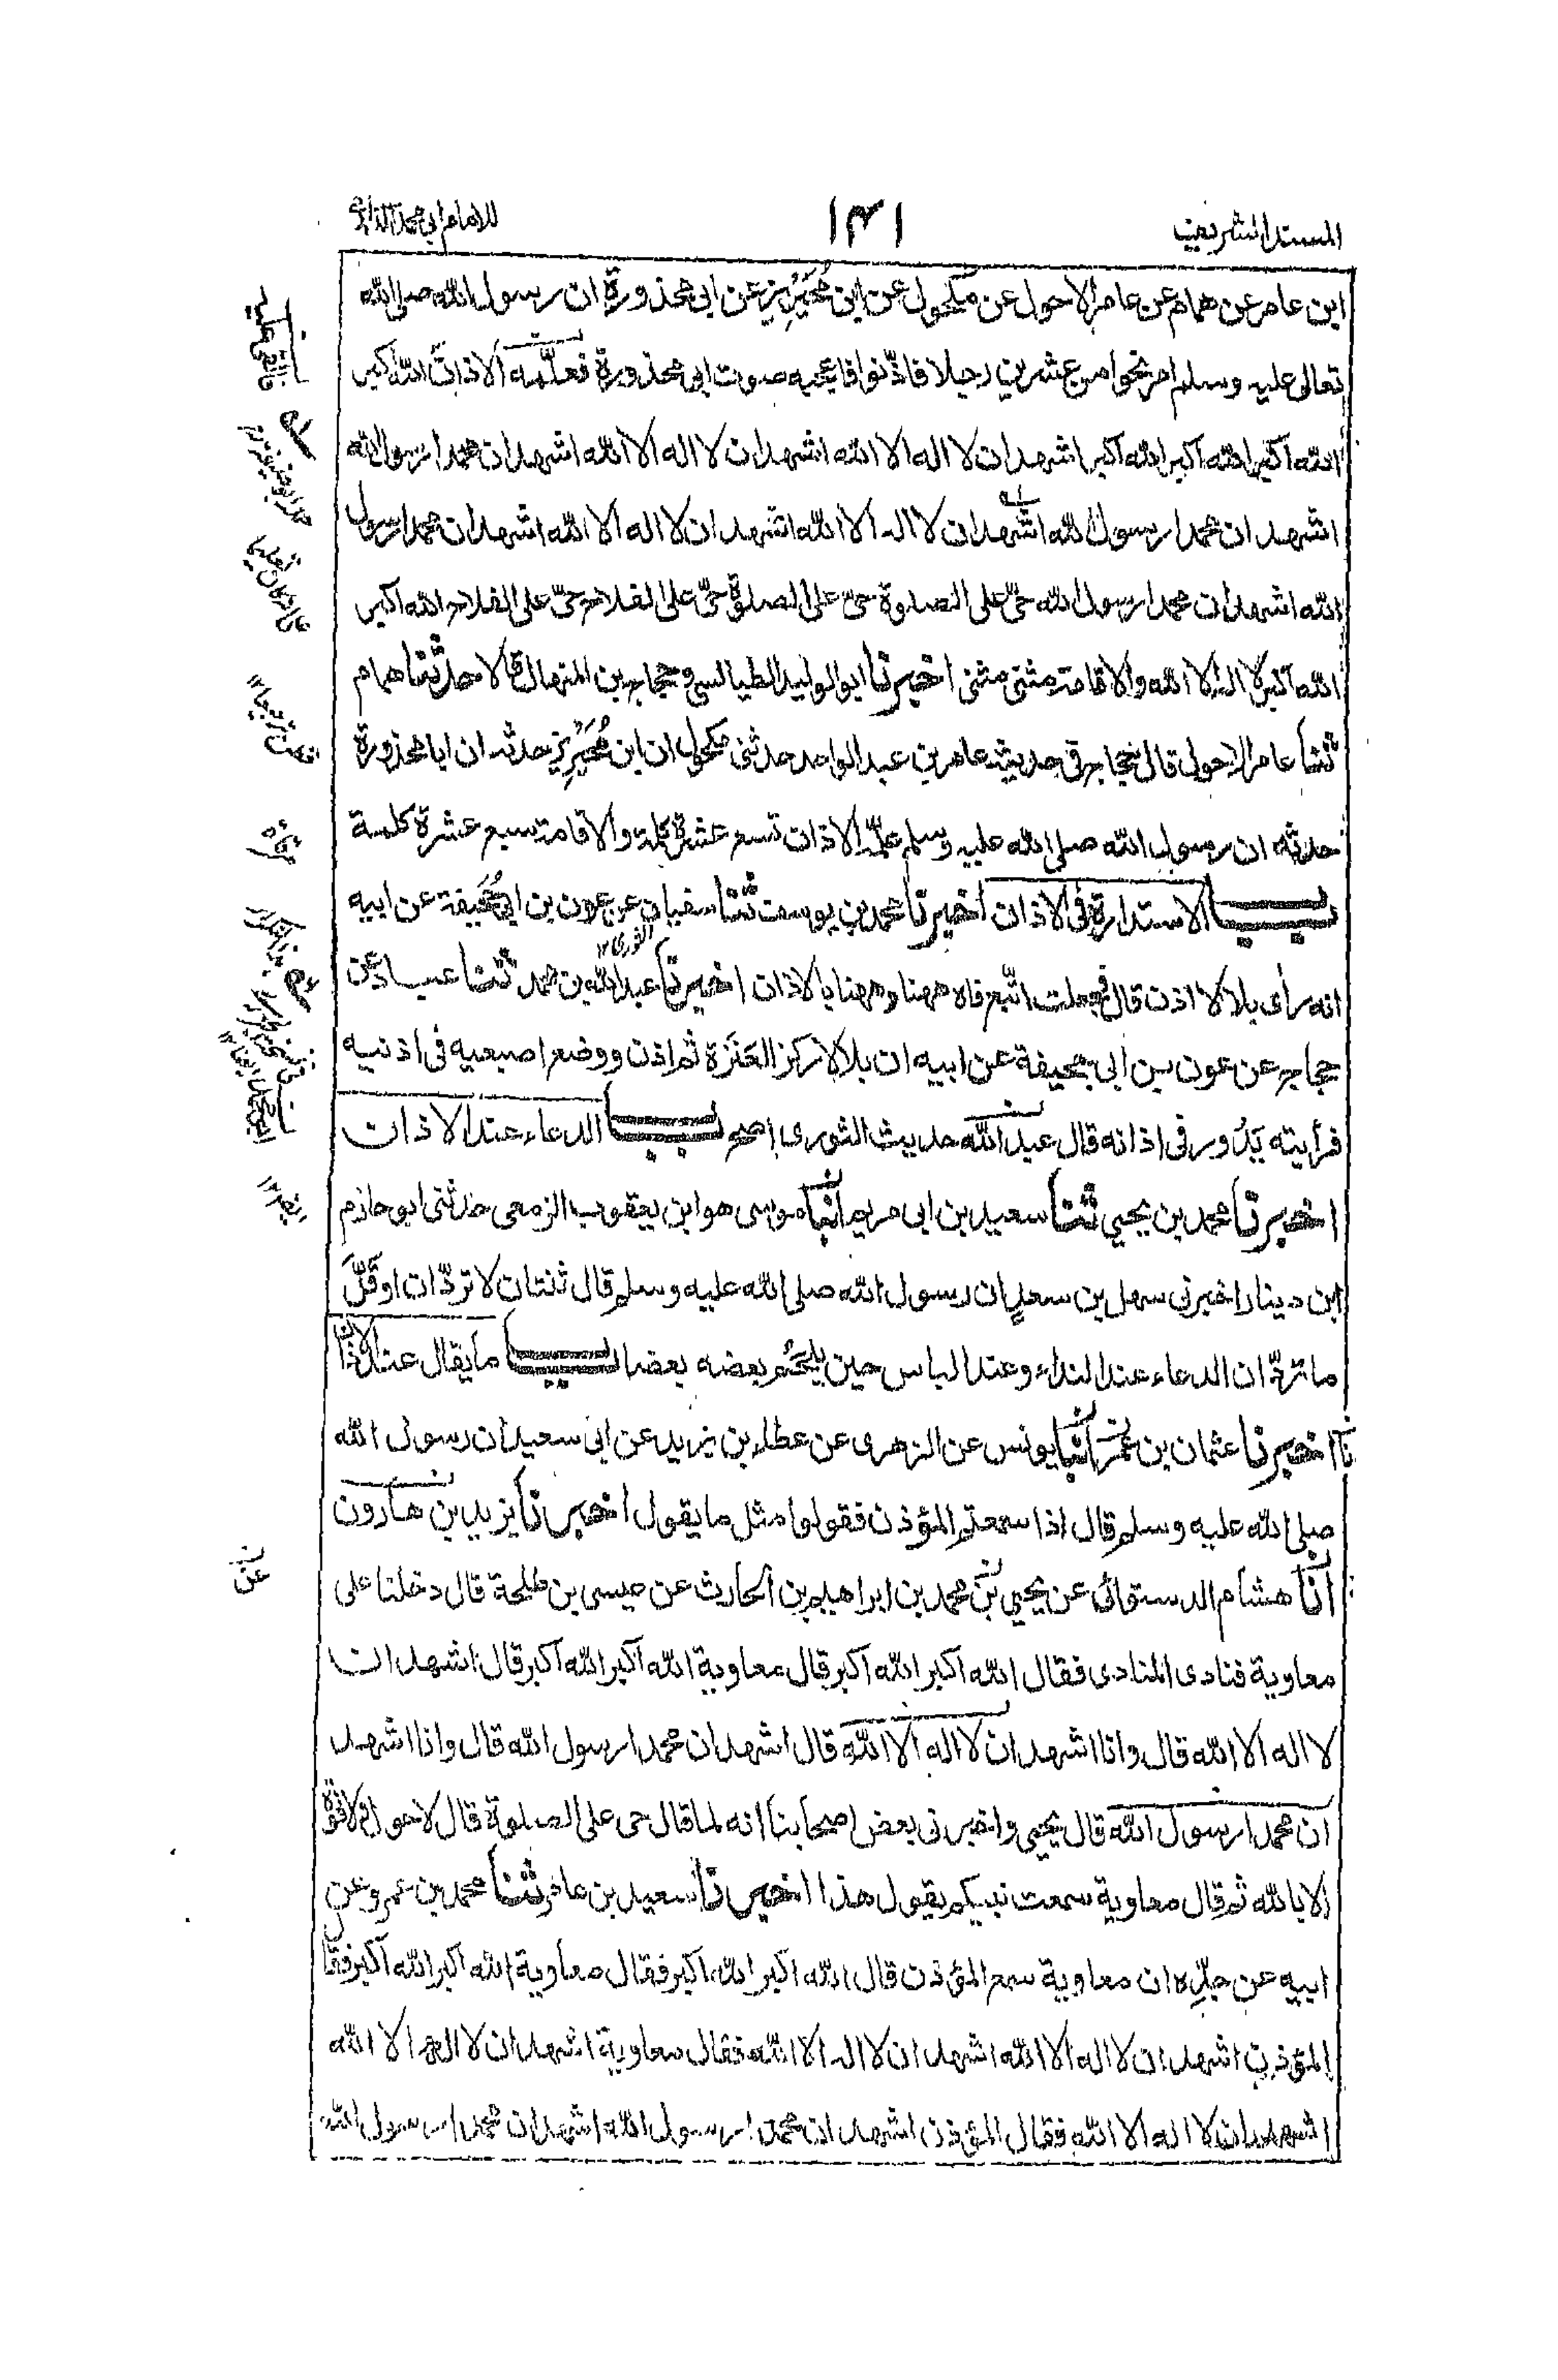 المسند الشريف
١٣١
للامام ابي محمد الدارمي
ابن عامر عن همام عن عامر الاحول عن مكحول عن ابن مُحَيْرِيز عن ابي محذورة ان رسول الله صلى الله
تعالى عليه وسلم امر نحوا من عشرين رجلا فاذّنوا فاعجبه صوت ابي محذورة فعلّمه الاذان الله اكبر
الله اكبر الله اكبر الله اكبر اشهد ان لا اله الا الله اشهد ان لا اله الا الله اشهد ان محمدا رسول الله
اشهد ان محمدا رسول الله اشهد ان لا اله الا الله اشهد ان لا اله الا الله اشهد ان محمدا رسول
الله اشهد ان محمدا رسول الله حيّ على الصلوة حيّ على الصلوة حيّ على الفلاح حيّ على الفلاح الله اكبر
الله اكبر لا اله الا الله والاقامة مثنى مثنى اخبرنا ابو الوليد الطيالسي وحجاج بن المنهال قالا حدثنا همام
ثنا عامر الاحول قال حجاج في حديثه عامر بن عبد الواحد حدثنى مكحول ان ابن مُحَيْرِيز حدثه ان ابا محذورة
حدثه ان رسول الله صلى الله عليه وسلم علّمه الاذان تسع عشرة كلمة والاقامة سبع عشرة كلمة
باب الاستدارة في الاذان اخبرنا محمد بن يوسف ثنا سفيان عن عون بن ابي جُحَيفة عن ابيه
الثوري ١٢
انه رأى بلالا اذن قال فجعلت اتّبع فاه ههنا وههنا بالاذان اخبرنا عبد الله بن محمد ثنا عباد عن
حجاج عن عون بن ابي جحيفة عن ابيه ان بلالا ركز العَنَزَة ثم اذن ووضع اصبعيه في اذنيه
فرأيته يَدُور في اذانه قال عبد الله حديث الثورى اصح باب الدعاء عند الاذان
اخبرنا محمد بن يحيى ثنا سعيد بن ابى مريم انبا موسى هو ابن يعقوب الزمعى حدثنى ابو حازم
ابن دينار اخبرنى سهل بن سعدٍ ان رسول الله صلى الله عليه وسلم قال ثنتان لا تردّان او قَلَّ
ما تردّان الدعاء عند النداء وعند الباس حين يلحم بعضه بعضا باب ما يقال عند الاذان
اخبرنا عثمان بن عُمَرَ انبا يونس عن الزهرى عن عطاء بن يزيد عن ابى سعيد ان رسول الله
صلى الله عليه وسلم قال اذا سمعتم المؤذن فقولوا مثل ما يقول اخبرنا يزيد بن هارون
انا هشام الدستوائى عن يحيى بن محمد بن ابراهيم بن الحارث عن عيسى بن طلحة قال دخلنا على
معاوية فنادى المنادى فقال الله اكبر الله اكبر قال معاوية الله اكبر الله اكبر قال اشهد ان
لا اله الا الله قال وانا اشهد ان لا اله الا الله قال اشهد ان محمدا رسول الله قال وانا اشهد
ان محمدا رسول الله قال يحيى واخبرنى بعض اصحابنا انه لما قال حى على الصلوة قال لا حول ولا قوة
الا بالله ثم قال معاوية سمعت نبيكم يقول هذا اخبرنا سعيد بن عامر ثنا محمد بن عمرو عن
ابيه عن جدّه ان معاوية سمع المؤذن قال الله اكبر الله اكبر فقال معاوية الله اكبر الله اكبر فقال
المؤذن اشهد ان لا اله الا الله اشهد ان لا اله الا الله فقال معاوية اشهد ان لا اله الا الله
اشهد ان لا اله الا الله فقال المؤذن اشهد ان محمدا رسول الله اشهد ان محمدا رسول الله
عن